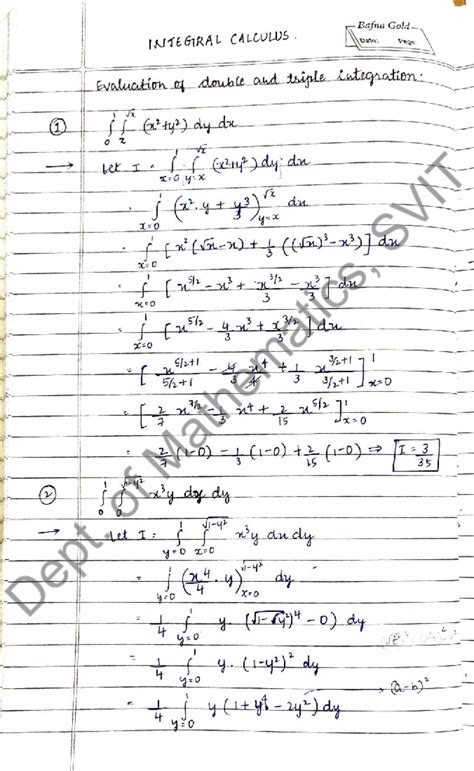 INTEGRAL CALCULUS.
Bafna Gold
Date: Page:
Evaluation of double and triple integration:
① ∫₀¹ ∫ₓ^√x (x²+y²) dy dx
→ Let I = ∫_{x=0}^{1} ∫_{y=x}^{√x} (x²+y²) dy dx
= ∫_{x=0}^{1} (x²·y + y³/3)_{y=x}^{√x} dx
= ∫_{x=0}^{1} [x²(√x-x) + 1/3 ((√x)³-x³)] dx
= ∫_{x=0}^{1} [x^{5/2} - x³ + x^{3/2}/3 - x³/3] dx
= ∫_{x=0}^{1} [x^{5/2} - 4/3 x³ + x^{3/2}/3] dx
= [x^{5/2+1}/(5/2+1) - 4/3 x⁴/4 + 1/3 x^{3/2+1}/(3/2+1)]_{x=0}^{1}
= [2/7 x^{7/2} - 1/3 x⁴ + 2/15 x^{5/2}]_{x=0}^{1}
= 2/7 (1-0) - 1/3 (1-0) + 2/15 (1-0) ⇒ I = 3/35
② ∫₀¹ ∫₀^{√1-y²} x³y dx dy
→ Let I = ∫_{y=0}^{1} ∫_{x=0}^{√1-y²} x³y dx dy
= ∫_{y=0}^{1} (x⁴/4 · y)_{x=0}^{√1-y²} dy
= 1/4 ∫_{y=0}^{1} y·(√1-y²)⁴ - 0) dy
= 1/4 ∫_{y=0}^{1} y·(1-y²)² dy
→ (a-b)²
= 1/4 ∫_{y=0}^{1} y(1+y⁴-2y²) dy
Dept. of Mathematics, SVIT